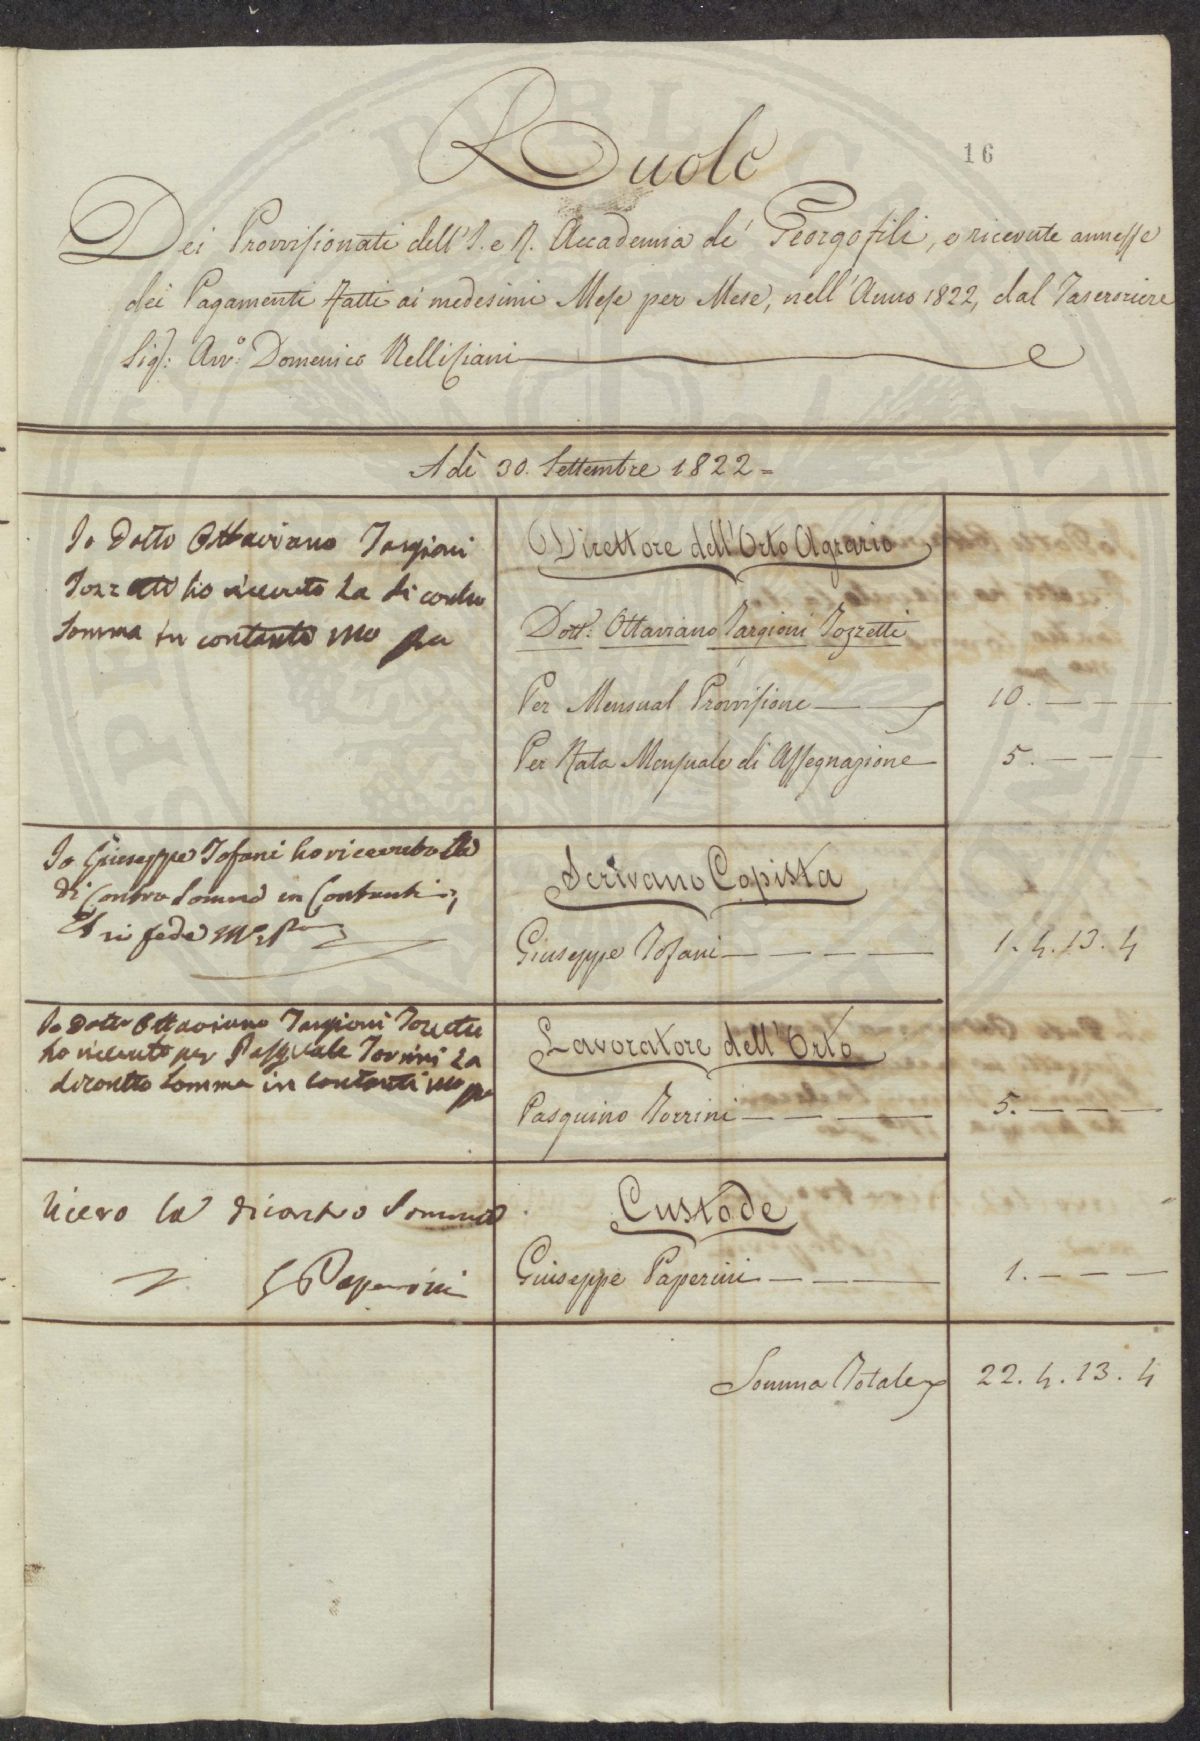 16
Ruolo
Dei Provvisionati dell'I. e R. Accademia de' Georgofili, e ricevute annesse
dei Pagamenti Fatti ai medesimi Mese per Mese, nell'Anno 1822, dal
Sig.: Avv.o Domenico
A dì 30. Settembre 1822 =
Io Dotto Ottaviano Targioni
Tozzetti ho ricevuto La di contro
Somma in contanti mo pa
Direttore dell'Orto Agrario
Dott: Ottaviano Targioni Tozzetti
Per Mensual Provvisione
10. — — —
Per Rata Mensuale di Assegnazione
5. — — —
Io Giuseppe Tofani ho ricevuto La
di Contro Somma in Contanti
Et in fede
Scrivano Copista
Giuseppe Tofani — — — —
1. 4. 13. 4
Io Dotto Ottaviano Targioni Tozzetti
ho ricevuto per Pasquale Torrini La
dicontro Somma in contanti mo pa
Lavoratore dell'Orto
Pasquino Torrini — — — —
5. — — —
Ricevo la dicontro Somma
G Paperini
Custode
Giuseppe Paperini — — — —
1. — — —
Somma Totale
22. 4. 13. 4